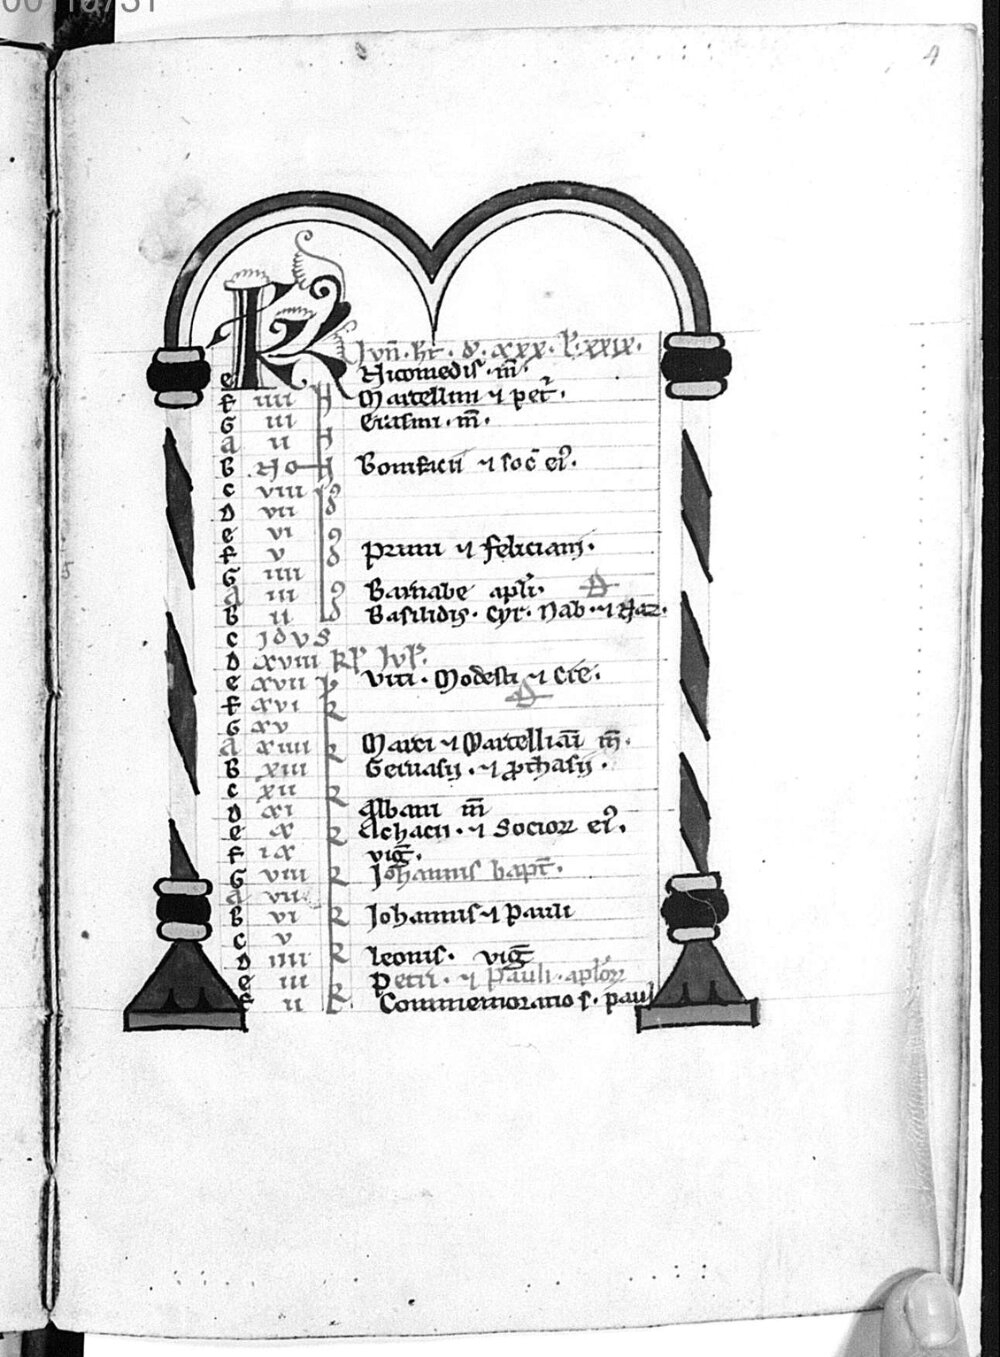 4
KL Iun̄. ht̄. d. xxx. l'. xxix.
e Nicomedis. m̄.
f iiii N Marcellini ⁊ pet'.
G iii Erasmi. m̄.
a ii N
b No N Bonifacii ⁊ soc̄ ei⁹.
c viii Id
d vii
e vi
f v Primi ⁊ feliciani.
G iiii
a iii Barnabe apl'i.
b ii Basilidis. Cyr. Nab. ⁊ Naz.
c Idus
d xviii kl' Iul'.
e xvii k Viti. Modesti ⁊ Cre.
f xvi
G xv
a xiiii Marci ⁊ Marcelliani m̄.
b xiii Geruasij. ⁊ ꝓthasij.
c xii
d xi Albani m̄
e x Achacii. ⁊ Socioꝝ ei⁹.
f ix vig̅.
G viii Johannis bapt̄.
a vii
b vi Johannis ⁊ Pauli
c v
d iiii Leonis. vig̅
e iii Petri. ⁊ Pauli. apl'oꝝ
f ii Commemoratio s. pauli